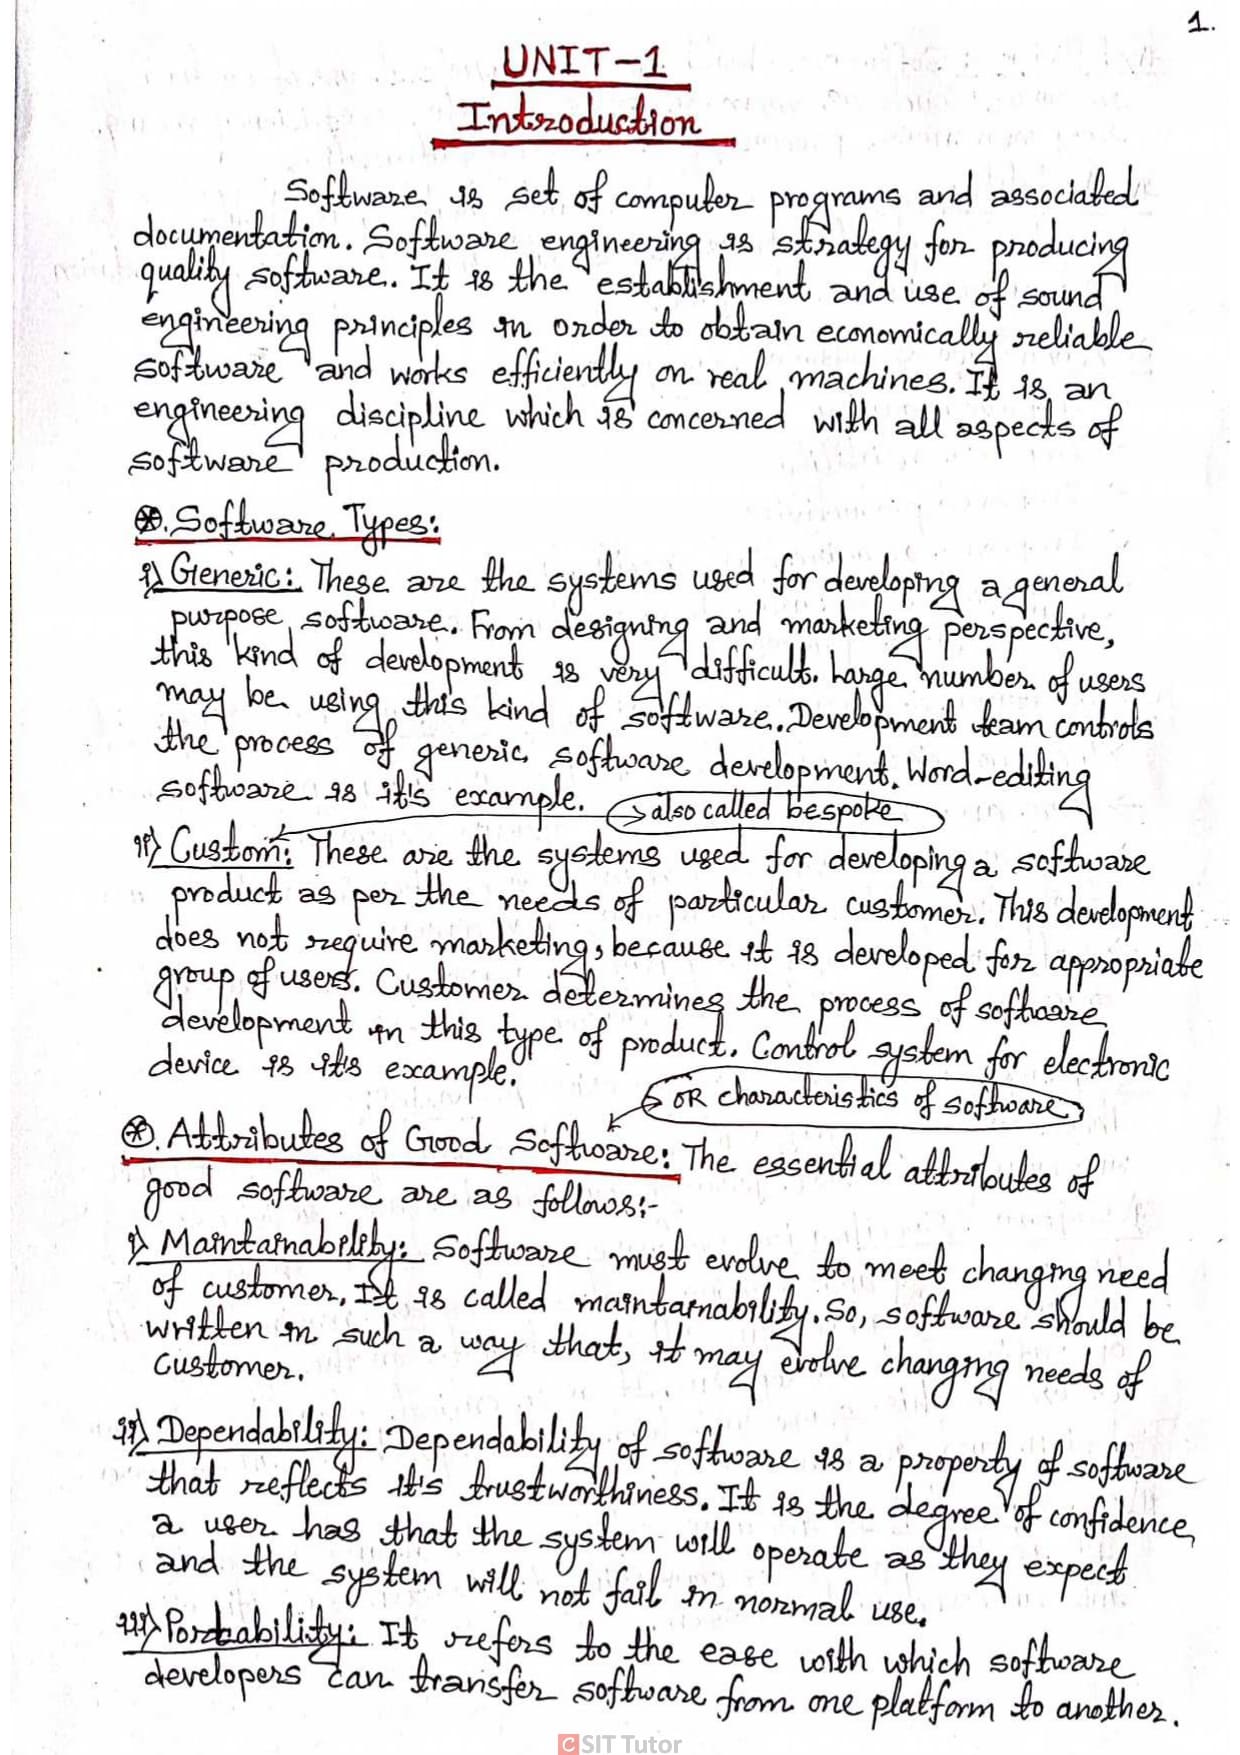 1.
UNIT-1
Introduction
Software is set of computer programs and associated
documentation. Software engineering is strategy for producing
quality software. It is the establishment and use of sound
engineering principles in order to obtain economically reliable
software and works efficiently on real machines. It is an
engineering discipline which is concerned with all aspects of
software production.
⊛. Software Types:
i) Generic: These are the systems used for developing a general
purpose software. From designing and marketing perspective,
this kind of development is very difficult. Large number of users
may be using this kind of software. Development team controls
the process of generic software development. Word-editing
software is it's example.
→ also called bespoke
ii) Custom: These are the systems used for developing a software
product as per the needs of particular customer. This development
does not require marketing, because it is developed for appropriate
group of users. Customer determines the process of software
development in this type of product. Control system for electronic
device is it's example.
→ OR characteristics of software
⊛. Attributes of Good Software: The essential attributes of
good software are as follows:-
i) Maintainability: Software must evolve to meet changing need
of customer. It is called maintainability. So, software should be
written in such a way that, it may evolve changing needs of
customer.
ii) Dependability: Dependability of software is a property of software
that reflects it's trustworthiness. It is the degree of confidence
a user has that the system will operate as they expect
and the system will not fail in normal use.
iii) Portability: It refers to the ease with which software
developers can transfer software from one platform to another.
CSIT Tutor